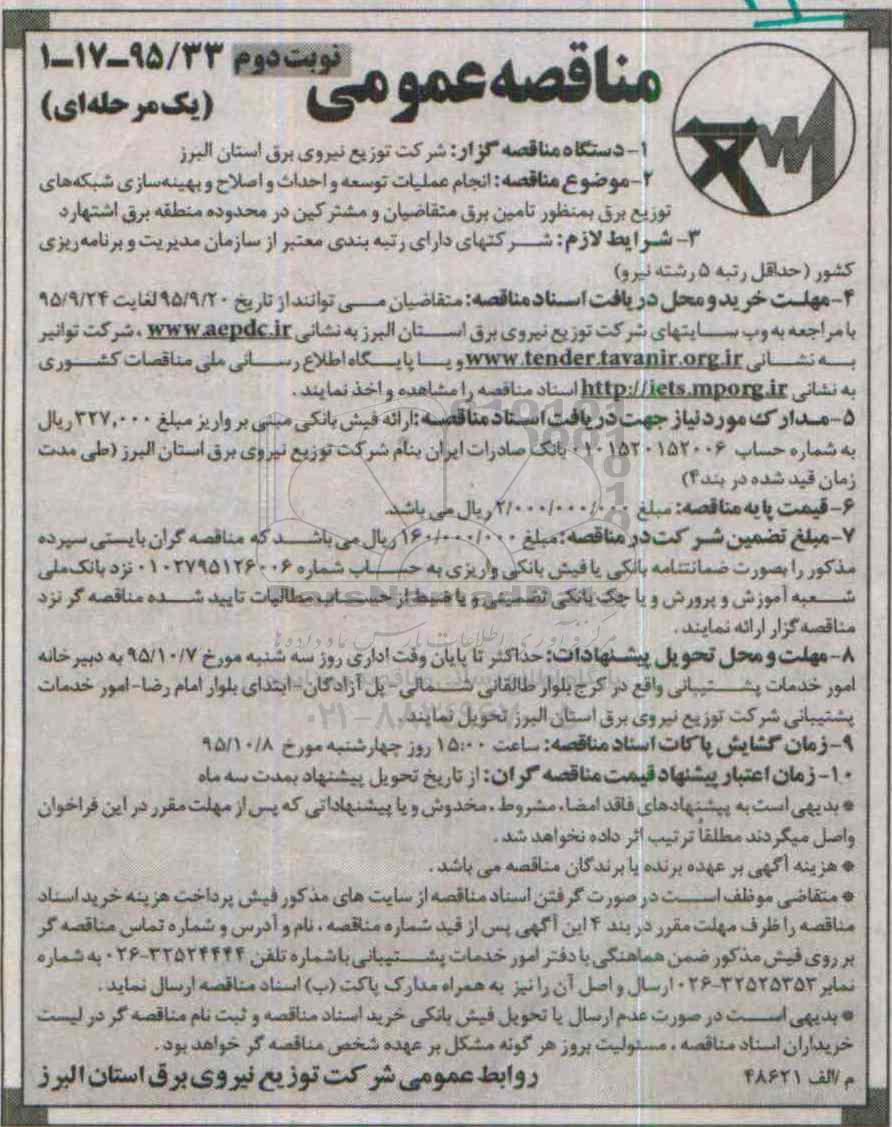 مناقصه عمومی
نوبت دوم ۹۵/۳۳-۱۷-۱
(یک مرحله‌ای)
۱- دستگاه مناقصه گزار: شرکت توزیع نیروی برق استان البرز
۲- موضوع مناقصه: انجام عملیات توسعه و احداث و اصلاح و بهینه‌سازی شبکه‌های
توزیع برق بمنظور تامین برق متقاضیان و مشترکین در محدوده منطقه برق اشتهارد
۳- شرایط لازم: شرکتهای دارای رتبه بندی معتبر از سازمان مدیریت و برنامه‌ریزی
کشور (حداقل رتبه ۵ رشته نیرو)
۴- مهلت خرید و محل دریافت اسناد مناقصه: متقاضیان می توانند از تاریخ ۹۵/۹/۲۰ لغایت ۹۵/۹/۲۴
با مراجعه به وب سایتهای شرکت توزیع نیروی برق استان البرز به نشانی www.aepdc.ir ، شرکت توانیر
به نشانی www.tender.tavanir.org.ir و یا پایگاه اطلاع رسانی ملی مناقصات کشوری
به نشانی http://iets.mporg.ir اسناد مناقصه را مشاهده و اخذ نمایند .
۵- مدارک مورد نیاز جهت دریافت اسناد مناقصه: ارائه فیش بانکی مبنی بر واریز مبلغ ۳۲۷,۰۰۰ ریال
به شماره حساب ۰۱۰۱۵۲۰۱۵۲۰۰۶ بانک صادرات ایران بنام شرکت توزیع نیروی برق استان البرز (طی مدت
زمان قید شده در بند۴)
۶- قیمت پایه مناقصه: مبلغ ۲/۰۰۰/۰۰۰/۰۰۰ ریال می باشد.
۷- مبلغ تضمین شرکت در مناقصه: مبلغ ۱۶۰/۰۰۰/۰۰۰ ریال می باشد که مناقصه گران بایستی سپرده
مذکور را بصورت ضمانتنامه بانکی یا فیش بانکی واریزی به حساب شماره ۰۱۰۲۷۹۵۱۲۶۰۰۶ نزد بانک ملی
شعبه آموزش و پرورش و یا چک بانکی تضمینی و یا ضبط از حساب مطالبات تایید شده مناقصه گر نزد
مناقصه گزار ارائه نمایند .
۸- مهلت و محل تحویل پیشنهادات: حداکثر تا پایان وقت اداری روز سه شنبه مورخ ۹۵/۱۰/۷ به دبیرخانه
امور خدمات پشتیبانی واقع در کرج بلوار طالقانی شمالی- پل آزادگان- ابتدای بلوار امام رضا- امور خدمات
پشتیبانی شرکت توزیع نیروی برق استان البرز تحویل نمایند.
۹- زمان گشایش پاکات اسناد مناقصه: ساعت ۱۵:۰۰ روز چهارشنبه مورخ ۹۵/۱۰/۸
۱۰- زمان اعتبار پیشنهاد قیمت مناقصه گران: از تاریخ تحویل پیشنهاد بمدت سه ماه
* بدیهی است به پیشنهادهای فاقد امضا، مشروط ، مخدوش و یا پیشنهاداتی که پس از مهلت مقرر در این فراخوان
واصل میگردند مطلقاً ترتیب اثر داده نخواهد شد .
* هزینه آگهی بر عهده برنده یا برندگان مناقصه می باشد .
* متقاضی موظف است در صورت گرفتن اسناد مناقصه از سایت های مذکور فیش پرداخت هزینه خرید اسناد
مناقصه را ظرف مهلت مقرر در بند ۴ این آگهی پس از قید شماره مناقصه ، نام و آدرس و شماره تماس مناقصه گر
بر روی فیش مذکور ضمن هماهنگی با دفتر امور خدمات پشتیبانی با شماره تلفن ۳۲۵۲۴۴۴۴-۰۲۶ به شماره
نمابر ۳۲۵۲۵۳۵۳-۰۲۶ ارسال و اصل آن را نیز به همراه مدارک پاکت (ب) اسناد مناقصه ارسال نماید .
* بدیهی است در صورت عدم ارسال یا تحویل فیش بانکی خرید اسناد مناقصه و ثبت نام مناقصه گر در لیست
خریداران اسناد مناقصه ، مسئولیت بروز هر گونه مشکل بر عهده شخص مناقصه گر خواهد بود .
م/الف ۴۸۶۲۱
روابط عمومی شرکت توزیع نیروی برق استان البرز